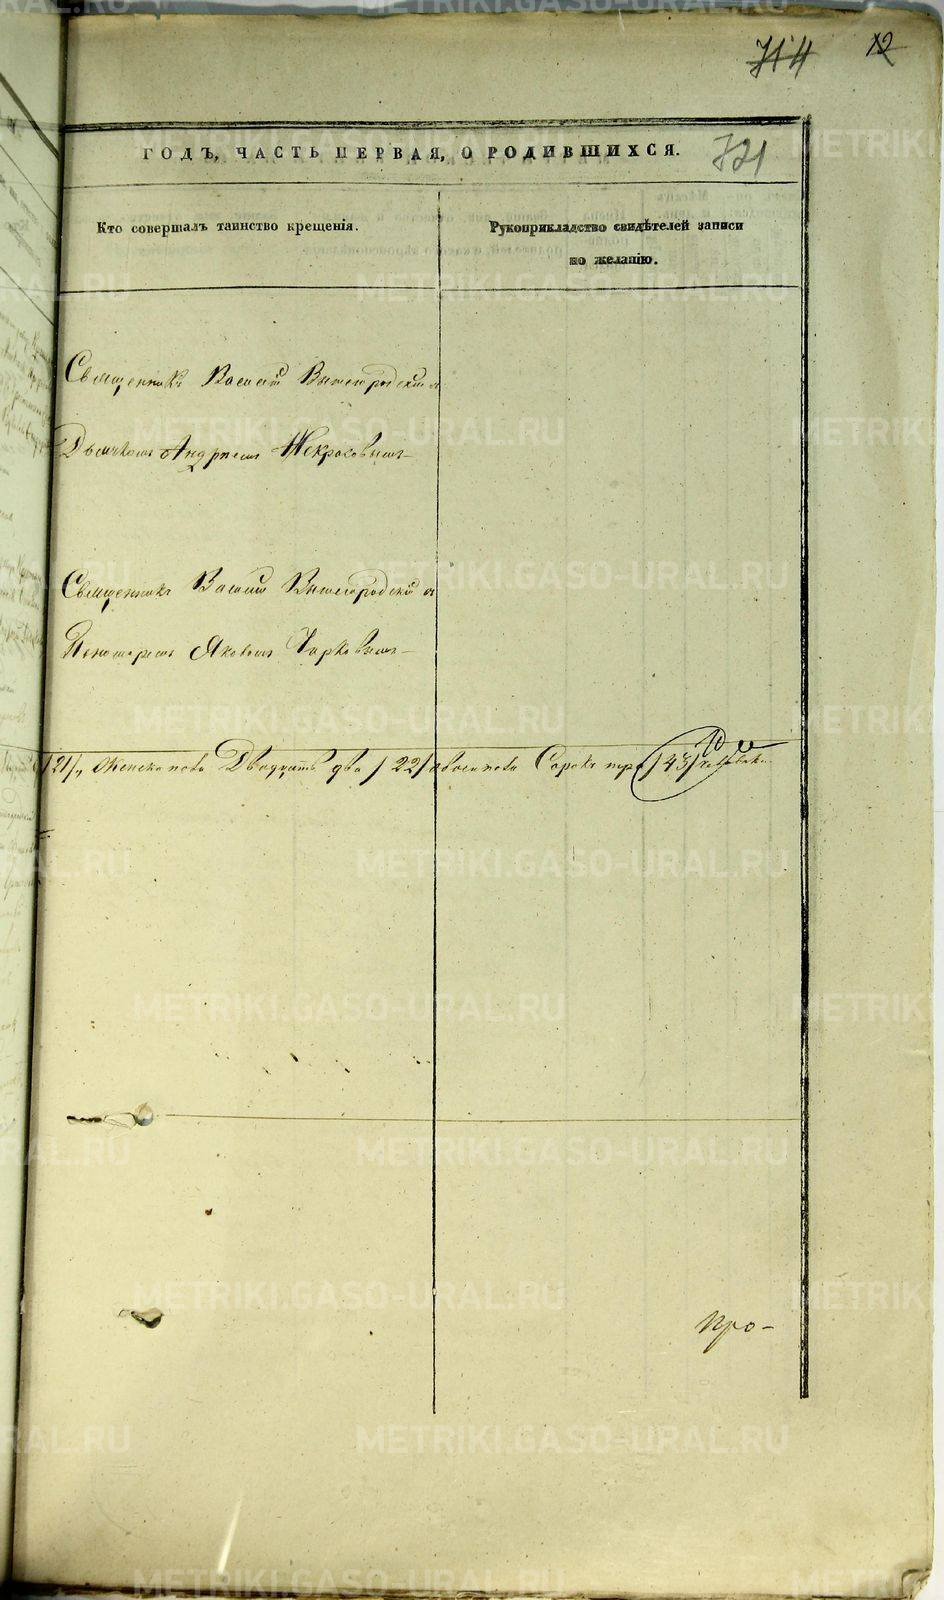 714 12
ГОДЪ, ЧАСТЬ ПЕРВАЯ, О РОДИВШИХСЯ. 721
Кто совершалъ таинство крещенія.
Рукоприкладство свидѣтелей записи
по желанію.
Священникъ Василій Вышегородскій съ
Дьячкомъ Андреемъ Некрасовымъ
Священникъ Василій Вышегородскій съ
Пономаремъ Яковомъ
/21/, Женска пола Двадцать два /22/ обоего пола Сорокъ три /43/ человѣка
Про-
METRIKI.GASO-URAL.RU